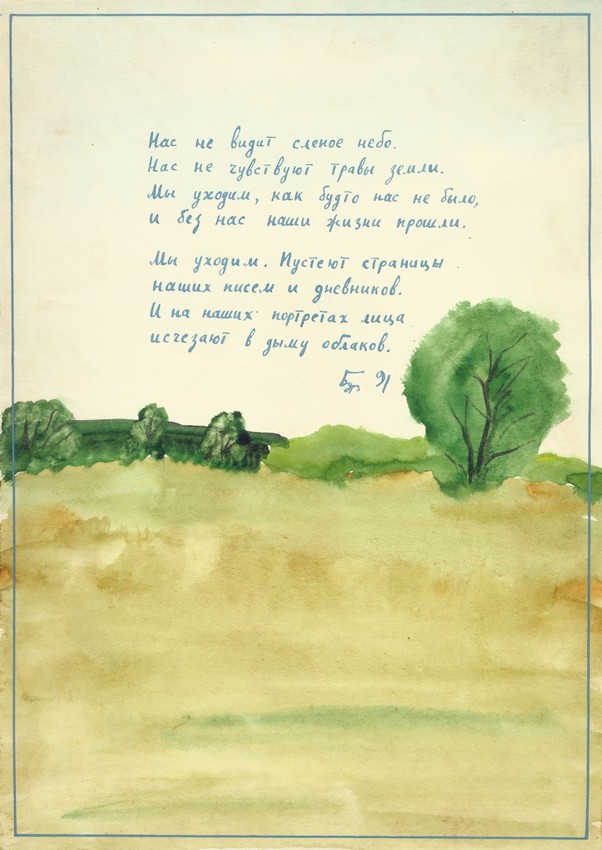 Нас не видит слепое небо.
Нас не чувствуют травы земли.
Мы уходим, как будто нас не было,
и без нас наши жизни прошли.
Мы уходим. Пустеют страницы
наших писем и дневников.
И на наших портретах лица
исчезают в дыму облаков.
91